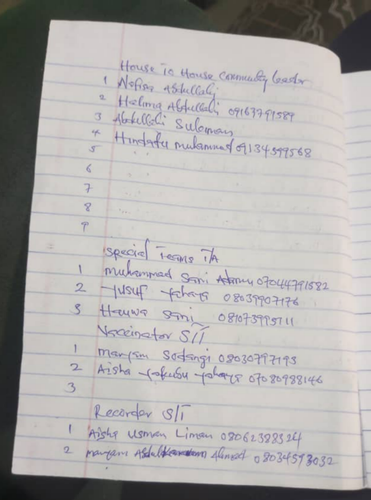 House to House community leader
1 Nafisa Abdullahi
2 Halima Abdullahi 09163791589
3 Abdullahi Sulaman
4 Hindatu muhammad 09134599568
5
6
7
8
9
Special Teams T/A
1 muhammad Sani Adamu 07044791582
2 Yusuf Yahaya 08039907176
3 Hauwa Sani 08103995711
Vaccinator S/T
1 maryam Sodangi 08030797193
2 Aisha Yakubu Yahaya 07080988146
3
Recorder S/T
1 Aisha Usman Liman 08062388324
2 maryam Ahmed 08034593032